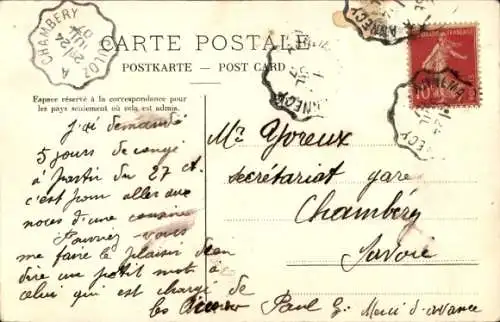 CHAMBERY A CULOZ
24
07
ANNECY
CARTE POSTALE
POSTKARTE — POST CARD
Espace réservé à la correspondance pour
les pays seulement où cela est admis.
10
j'ai demandé
5 jours de congé
à partir du 27 ct.
c'est pour aller aux
noces d'une cousine
Pourriez-vous
me faire le plaisir d'en
dire un petit mot à
celui qui est chargé de
les
Paul G. Merci d'avance
Mr Yvreux
secrétariat gare
Chambéry
Savoie